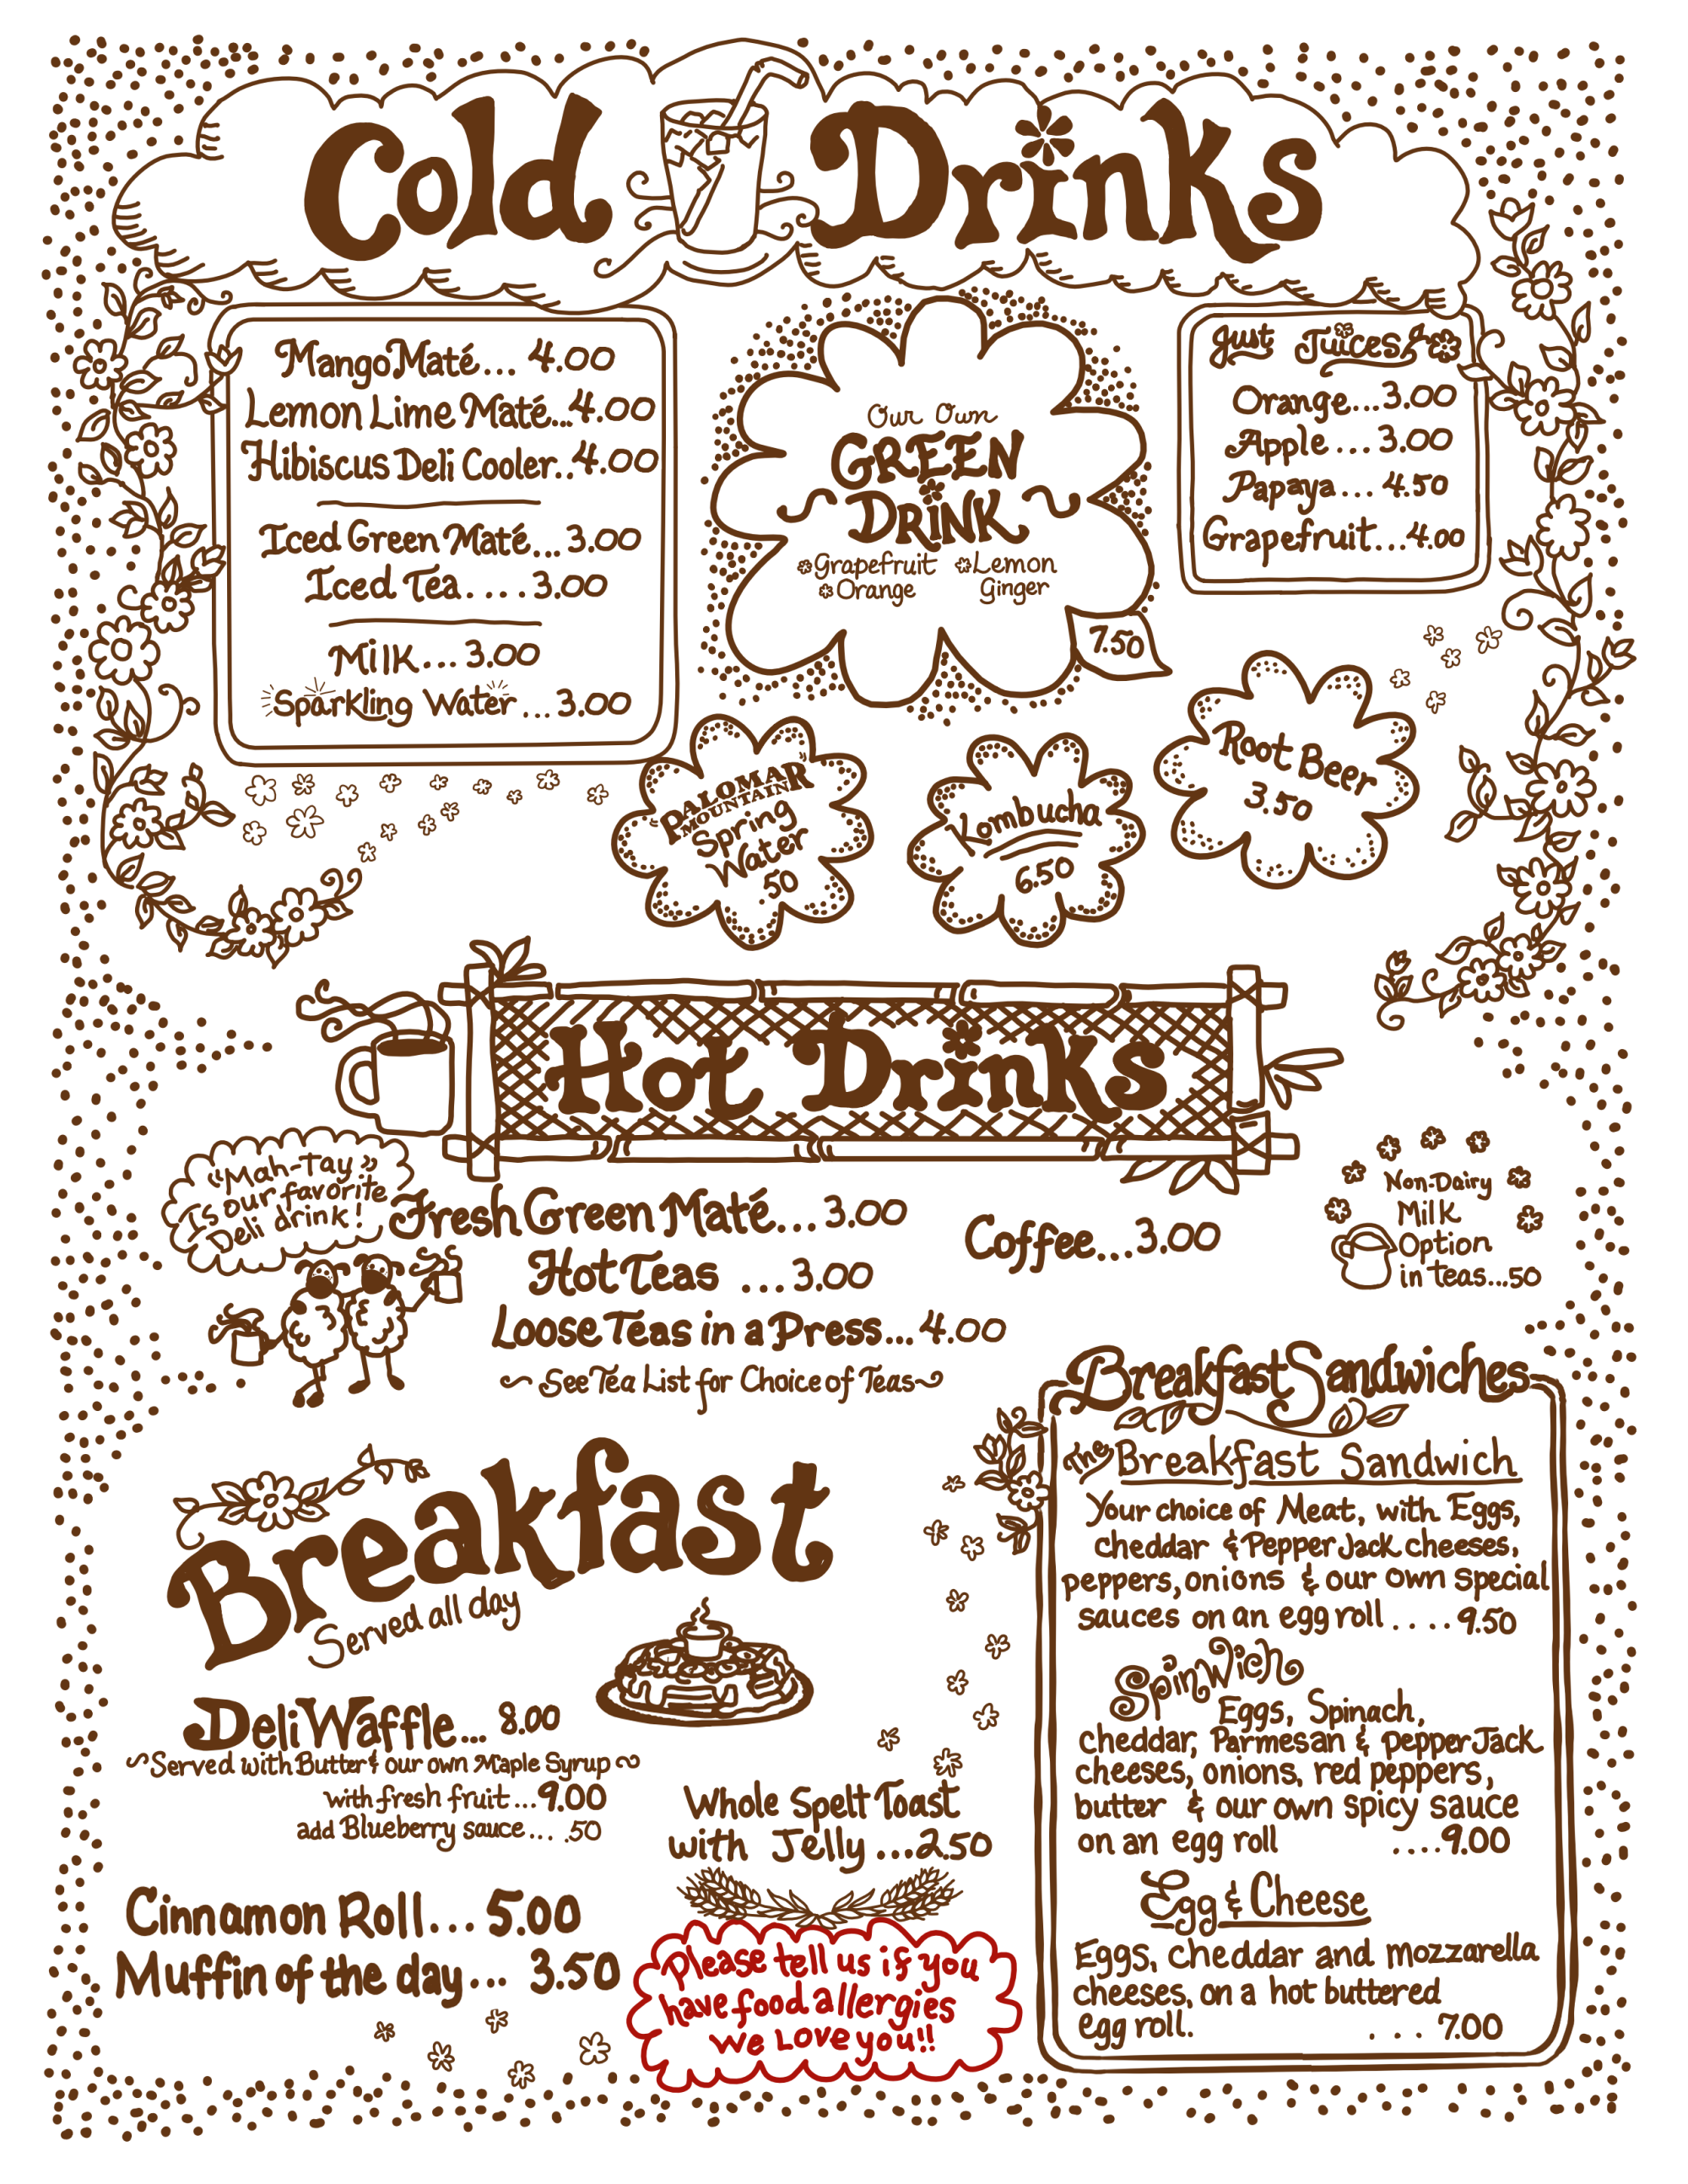 Cold Drinks
Mango Maté... 4.00
Lemon Lime Maté...4.00
Hibiscus Deli Cooler..4.00
Iced Green Maté... 3.00
Iced Tea.... 3.00
Milk... 3.00
Sparkling Water... 3.00
Our Own
GREEN
DRINK
Grapefruit Lemon
Orange Ginger
7.50
Just Juices
Orange...3.00
Apple... 3.00
Papaya... 4.50
Grapefruit...4.00
"PALOMAR"
MOUNTAIN
Spring
Water
.50
Kombucha
6.50
Root Beer
3.50
Hot Drinks
"Mah-Tay"
Is our favorite
Deli drink!
Fresh Green Maté... 3.00
Hot Teas ...3.00
Loose Teas in a Press... 4.00
~See Tea List for Choice of Teas~
Coffee...3.00
Non-Dairy
Milk
Option
in teas...50
Breakfast
Served all day
Deli Waffle... 8.00
~Served with Butter & our own Maple Syrup~
with fresh fruit...9.00
add Blueberry sauce... .50
Cinnamon Roll... 5.00
Muffin of the day... 3.50
Whole Spelt Toast
with Jelly ...2.50
Please tell us if you
have food allergies
We Love you!!
Breakfast Sandwiches
The Breakfast Sandwich
Your choice of Meat, with Eggs,
cheddar & Pepper Jack cheeses,
peppers, onions & our own special
sauces on an egg roll.... 9.50
SpinWich
Eggs, Spinach,
cheddar, Parmesan & pepper Jack
cheeses, onions, red peppers,
butter & our own spicy sauce
on an egg roll ....9.00
Egg & Cheese
Eggs, cheddar and mozzarella
cheeses, on a hot buttered
egg roll. ... 7.00